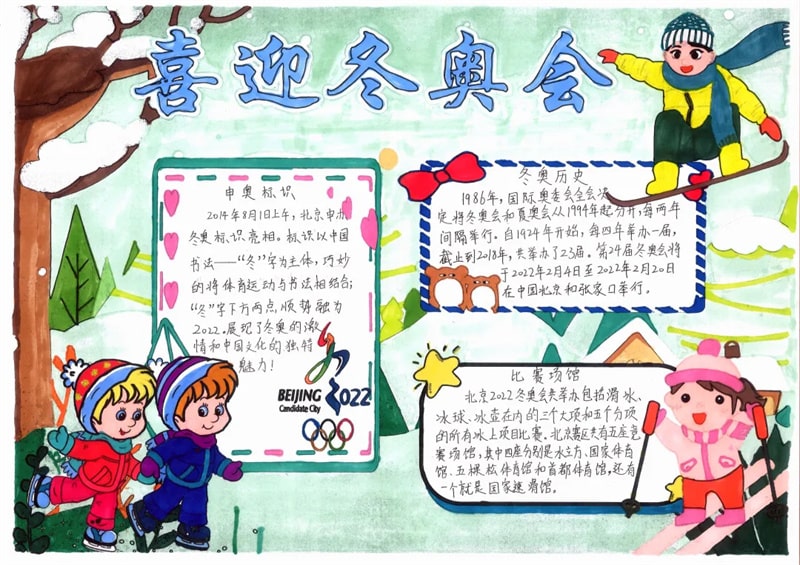 喜迎冬奥会
申奥标识
2014年8月1日上午，北京申办
冬奥标识亮相。标识以中国
书法——“冬”字为主体，巧妙
的将体育运动与书法相结合；
“冬”字下方两点顺势融为
2022。展现了冬奥的激
情和中国文化的独特
魅力！
BEIJING 2022
Candidate City
冬奥历史
1986年，国际奥委会全会决
定将冬奥会和夏奥会从1994年起分开，每两年
间隔举行。自1924年开始，每四年举办一届，
截止到2018年，共举办了23届。第24届冬奥会将
于2022年2月4日至2022年2月20日
在中国北京和张家口举行。
比赛场馆
北京2022冬奥会共举办包括滑冰、
冰球、冰壶在内的三个大项和五个分项
的所有冰上项目比赛。北京赛区共有五座竞
赛场馆，其中四座分别是水立方、国家体育
馆、五棵松体育馆和首都体育馆，还有
一个就是国家速滑馆。